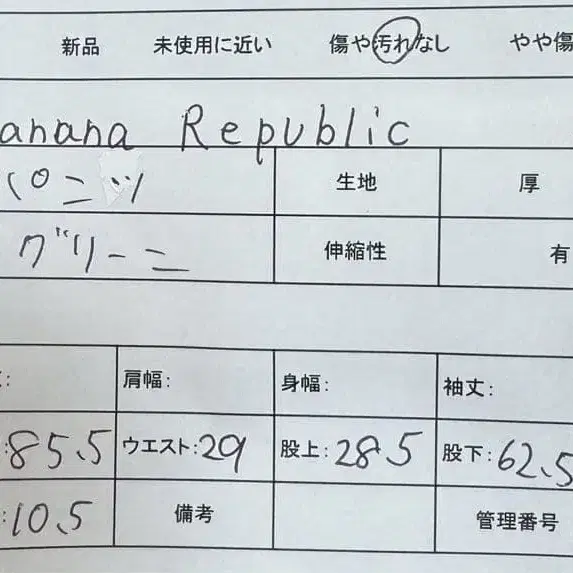 新品 未使用に近い 傷や汚れなし やや傷
anana Republic
パニツ 生地 厚
グリーニ 伸縮性 有
: 肩幅: 身幅: 袖丈:
:85.5 ウエスト:29 股上:28.5 股下:62.5
:10.5 備考 管理番号